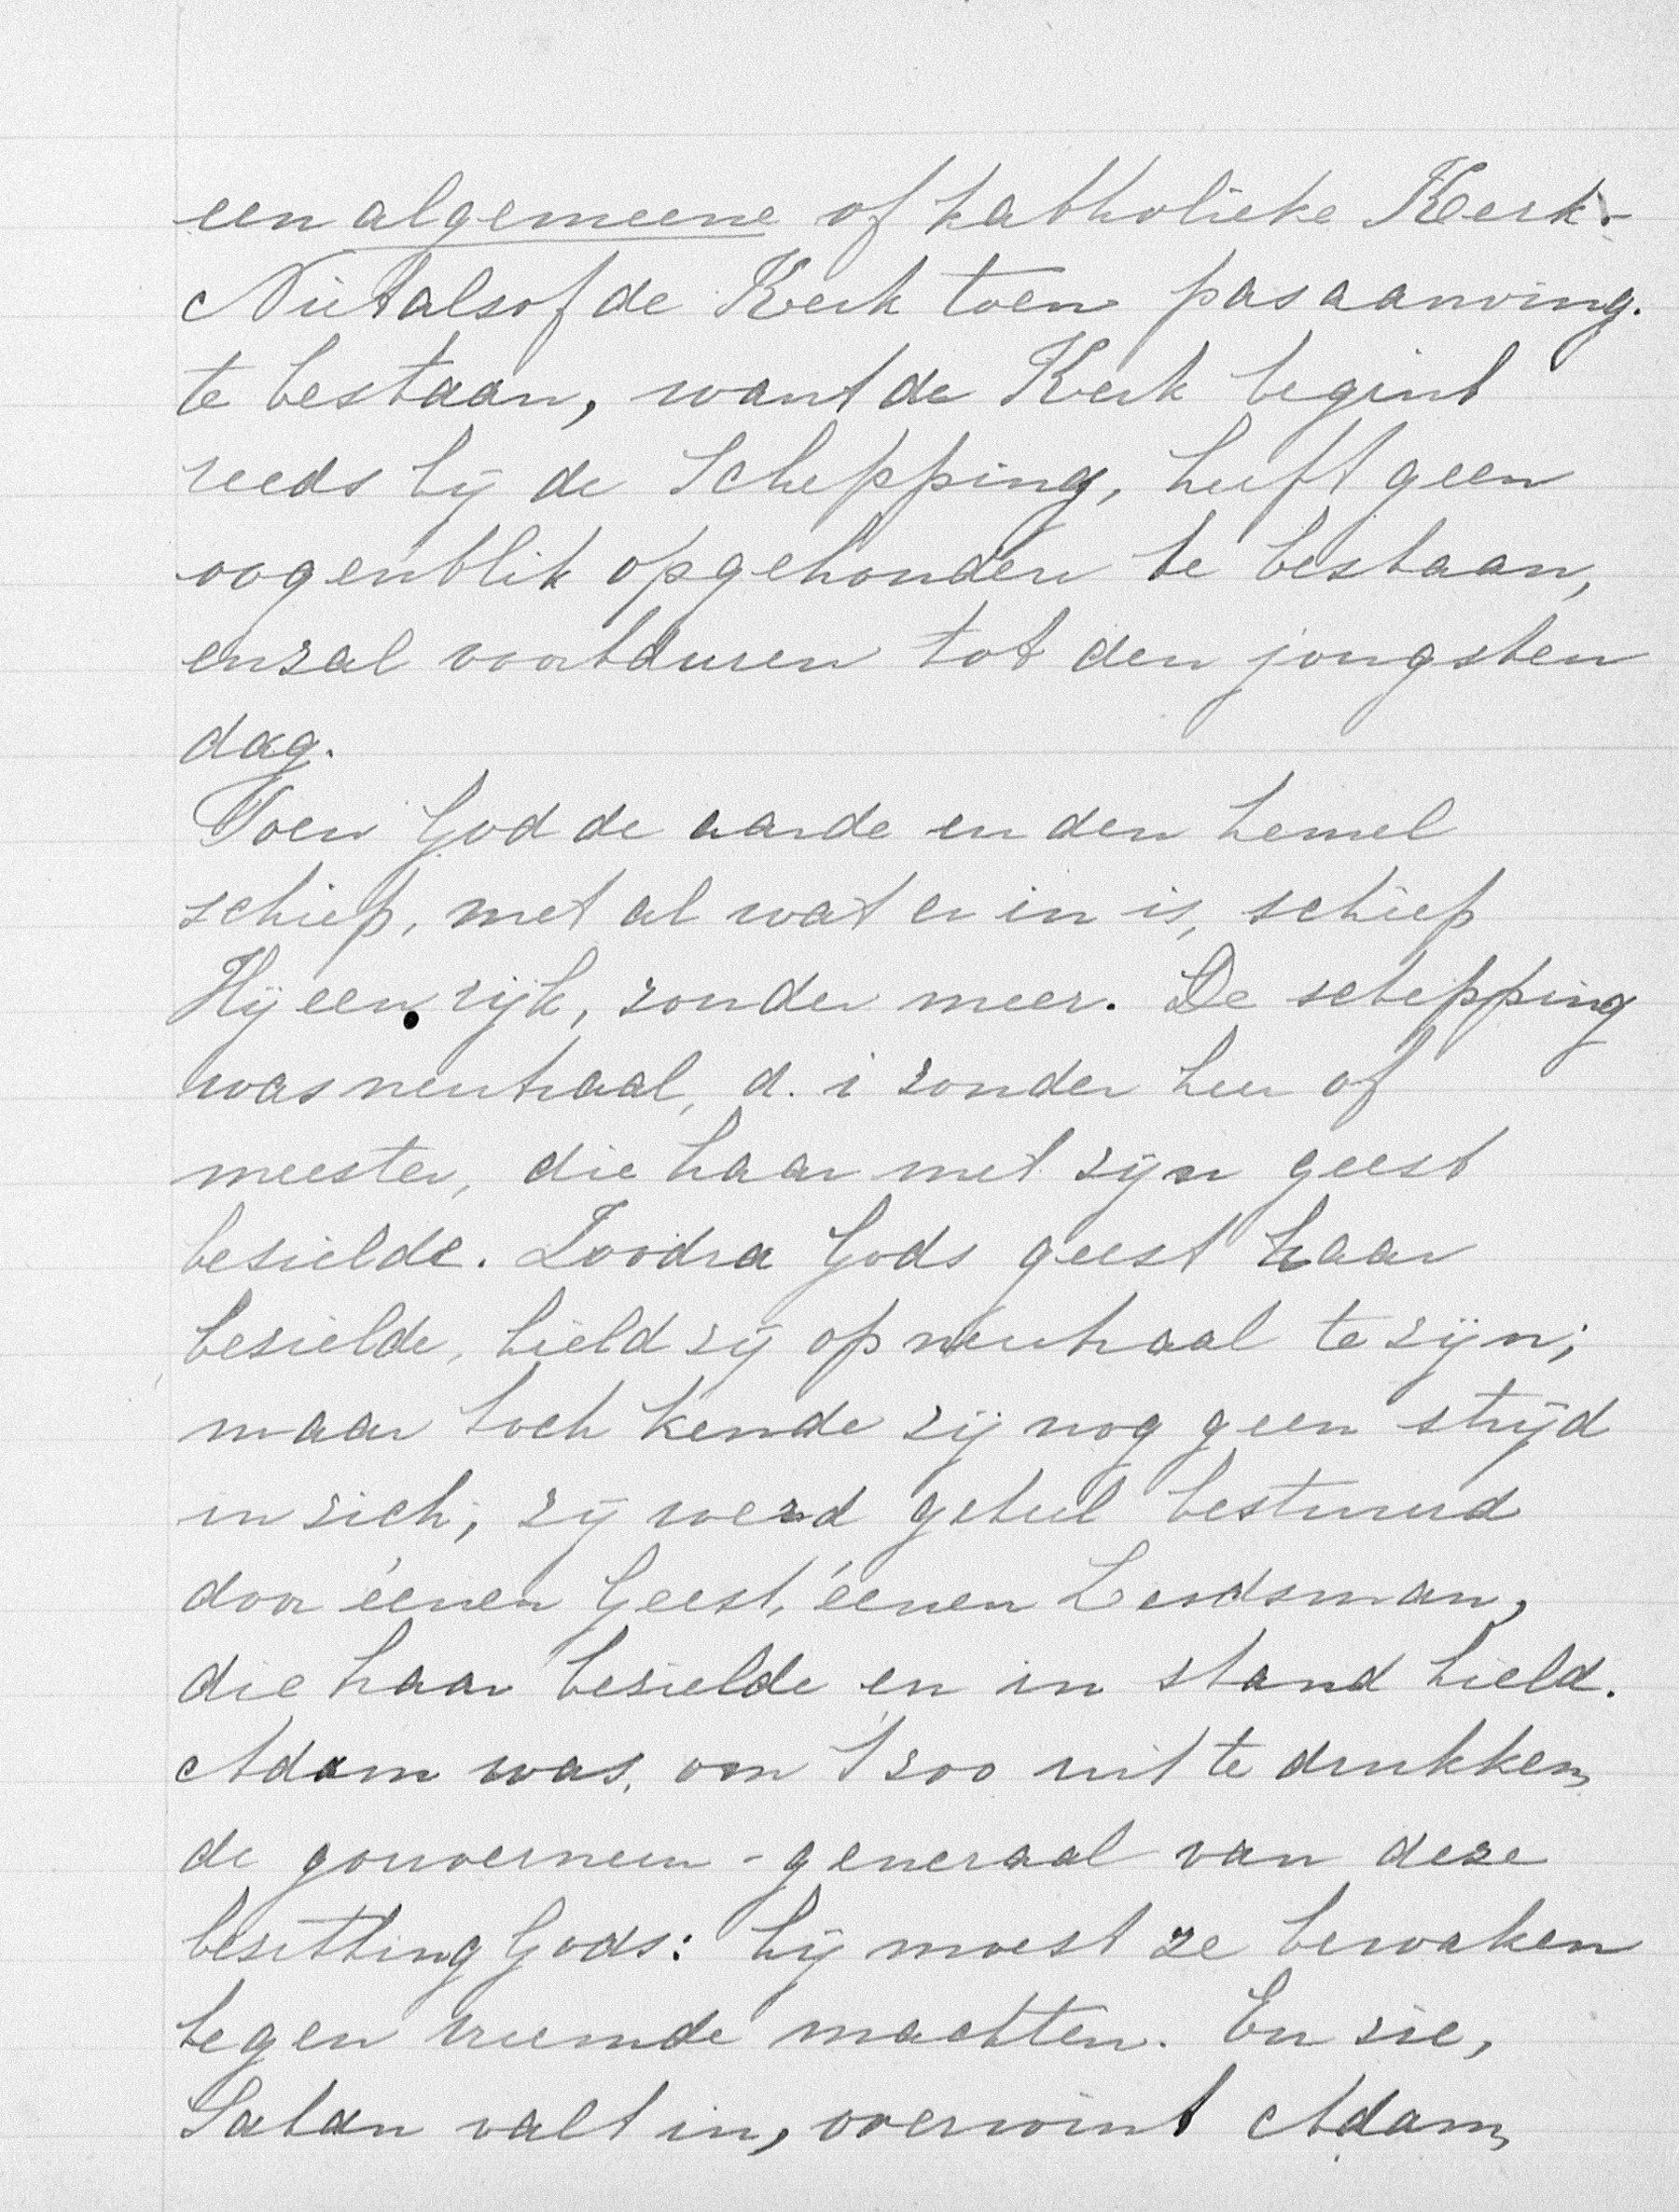 een algemeene of katholieke Kerk.
Niet alsof de Kerk toen pas aanving.
te bestaan, want de Kerk begint
reeds bij de Schepping, heeft geen
oogenblik opgehouden te bestaan,
en zal voortduren tot den jongsten
dag.
Toen God de aarde en den hemel
schiep, met al wat er in is, schiep
Hij een rijk, zonder meer. De schepping
was neutraal, d. i zonder heer of
meester, die haar met zijn geest
bezielde. Zoodra Gods geest haar
bezielde, hield zij op neutraal te zijn;
maar toch kende zij nog geen strijd
in zich; zij werd geheel bestuurd
door éénen Geest, éénen Leidsman,
die haar bezielde en in stand hield.
Adam was, om 't zoo uit te drukken,
de gouverneur-generaal van deze
bezitting Gods: hij moest ze bewaken
tegen vreemde machten. En zie,
Satan valt in, overwint Adam,